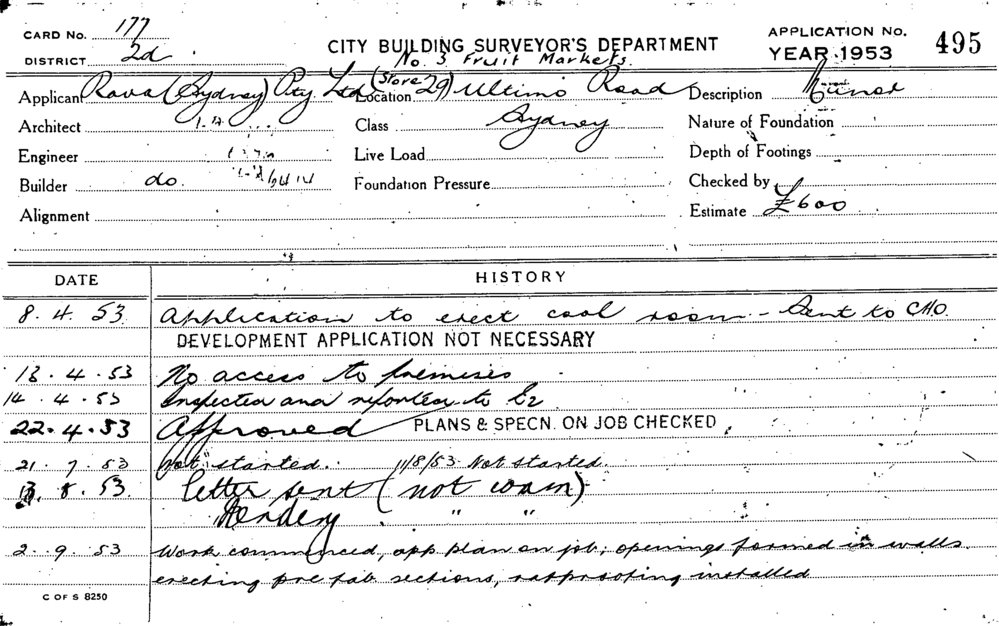 CARD No. 177
DISTRICT 2d
CITY BUILDING SURVEYOR'S DEPARTMENT
APPLICATION No.
YEAR 1953 495
No. 3 Fruit Markets.
Applicant Rava (Sydney) Pty. Ltd Location (Store 29) Ultimo Road Description
Architect Class Sydney Nature of Foundation
Engineer Live Load Depth of Footings
Builder do. Foundation Pressure Checked by
Alignment Estimate £600
DATE HISTORY
8. 4. 53 Application to erect cool room - Sent to CHO.
DEVELOPMENT APPLICATION NOT NECESSARY
13. 4. 53 No access to premises
14. 4. 53 Inspected and reported to
22. 4. 53 Approved PLANS & SPECN. ON JOB CHECKED
21. 7. 53 Not started. 11/8/53 Not started.
13. 8. 53. Letter sent (not com)
" "
2. 9. 53 Work commenced, app plan on job; openings formed in walls.
erecting pre fab sections, ratproofing installed
C OF S 8250